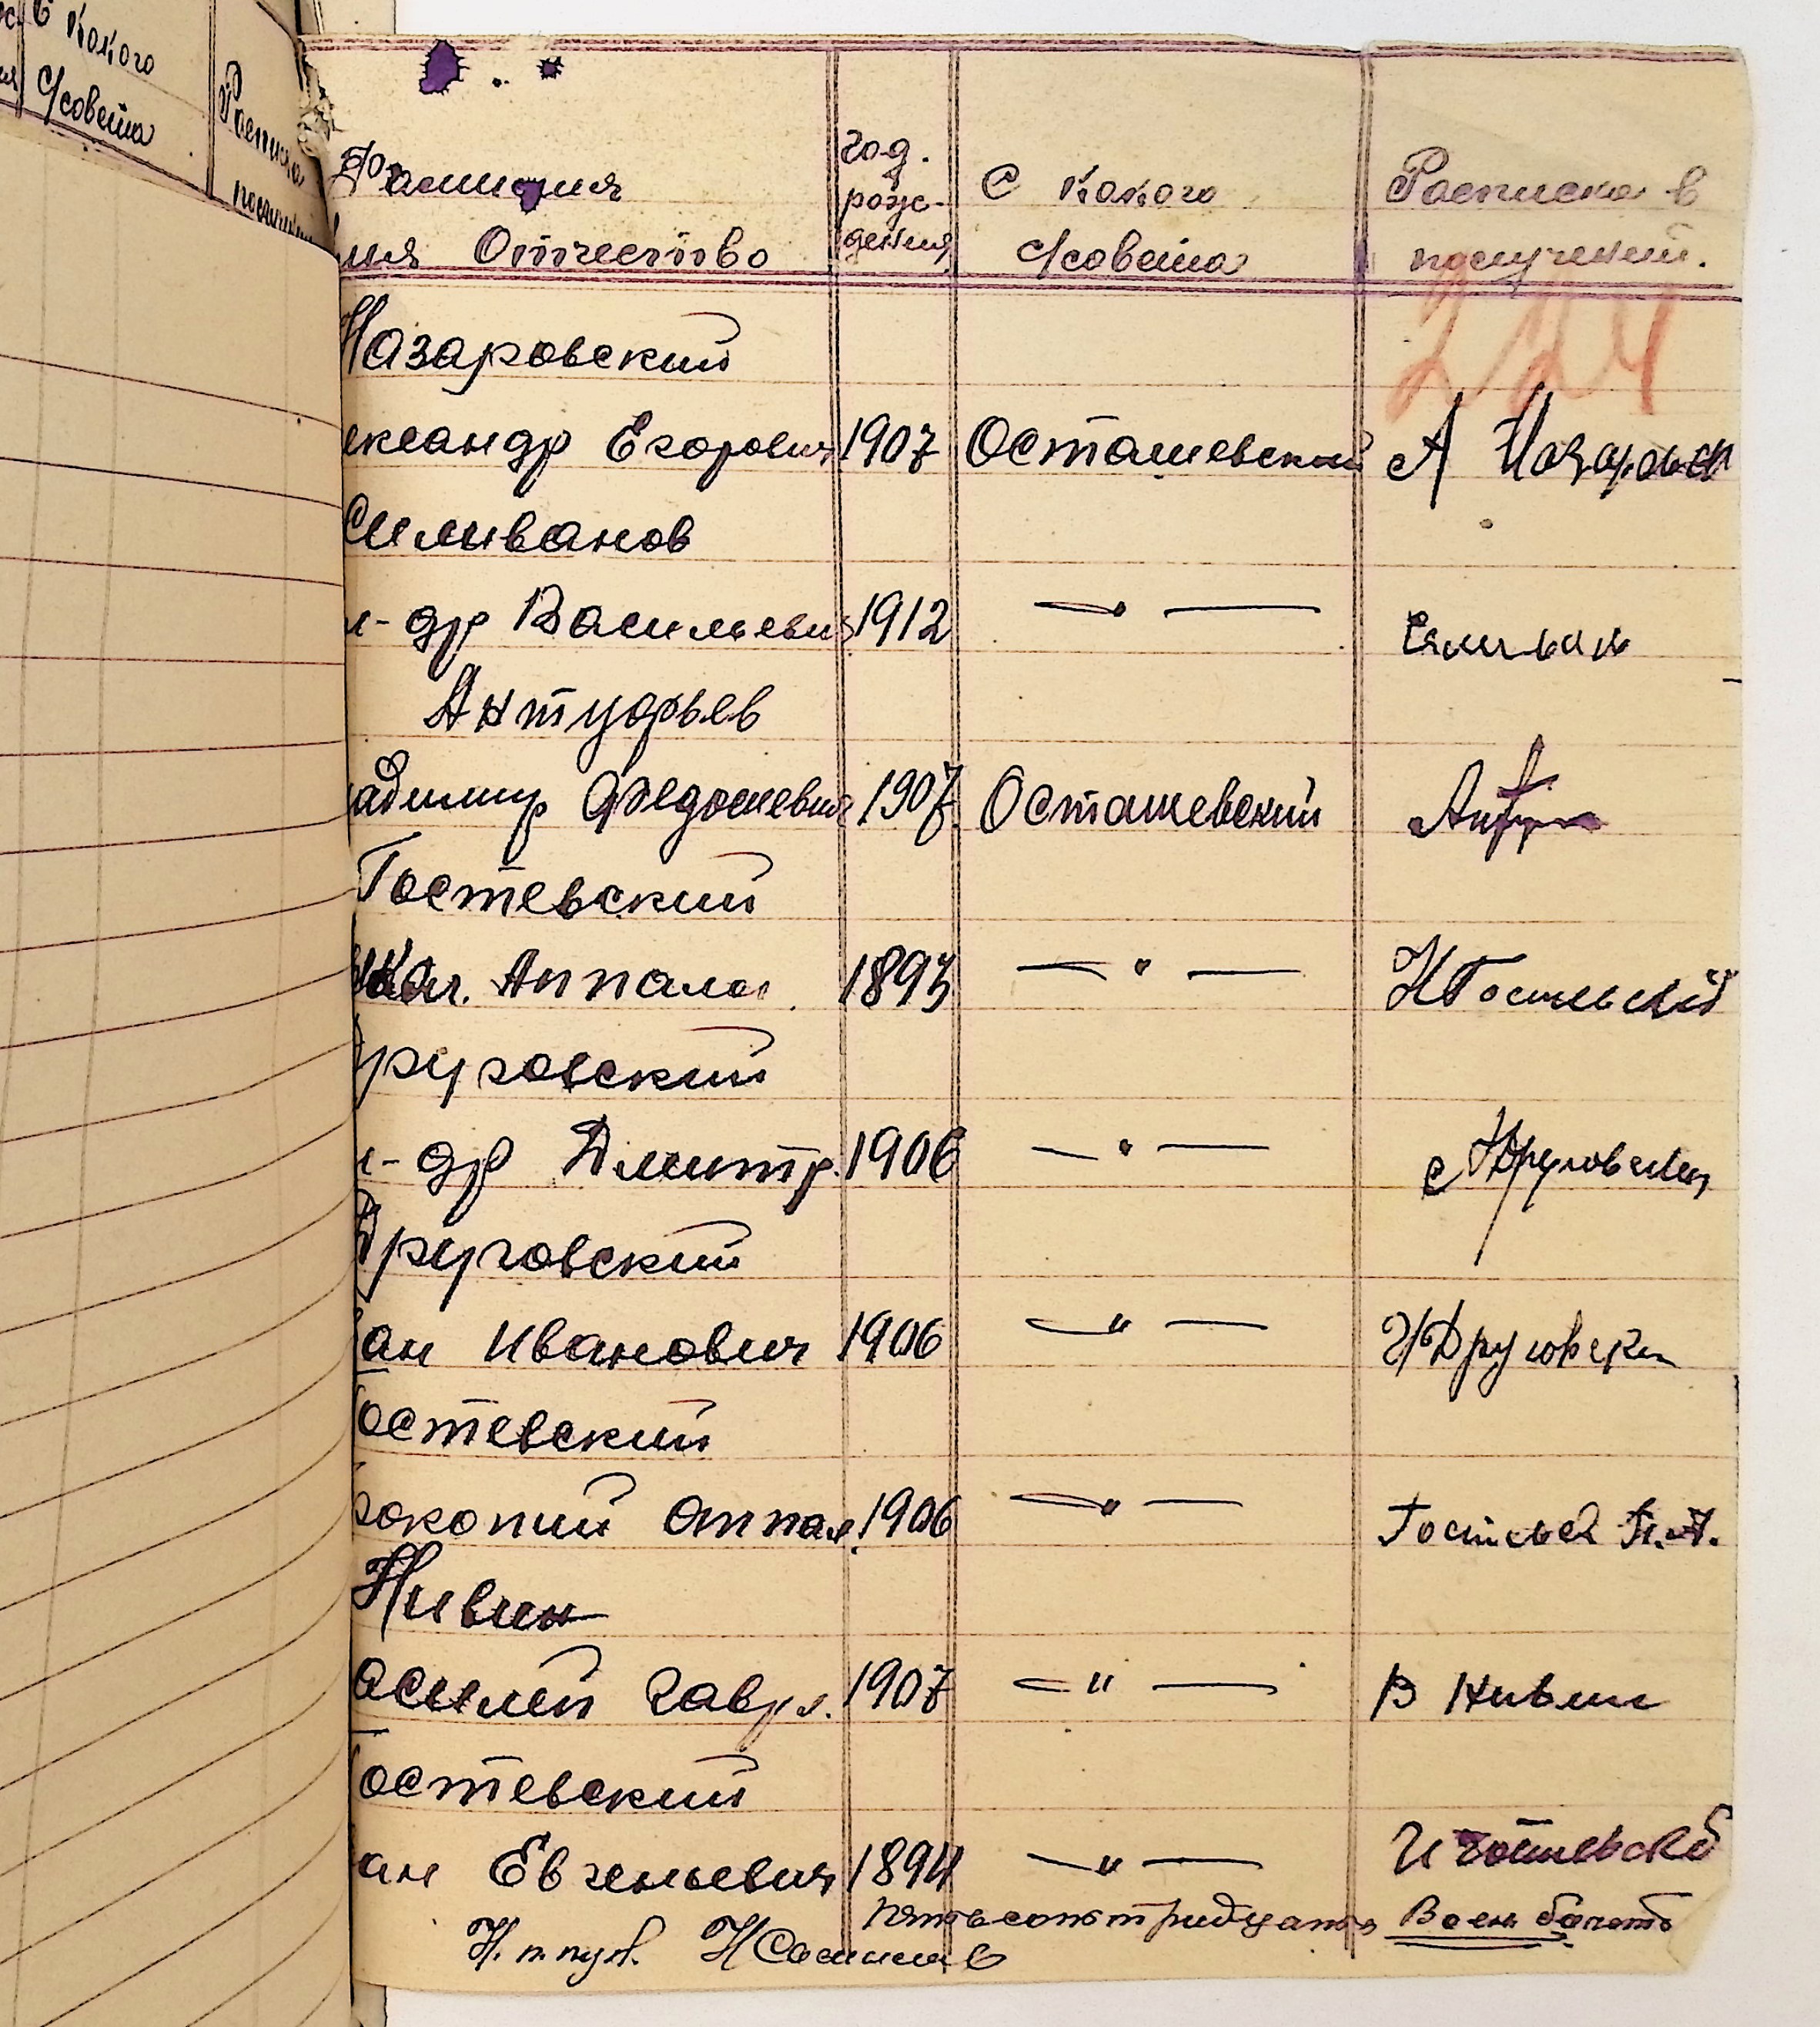 Какого
С/совета
Расписка
Фамилия
мя Отчество
год.
рож-
дения
С какого
С/совета
Расписка в
получении.
224
Назаровский
ександр Егорович 1907 Осташевский А Назаровск
Силиванов
л-др Васильевич 1912 —〃—
Антуфьев
адимир Федосеевич 1907 Осташевский Антуф
Гостевский
Аппало 1893 —〃— Н Гостевский
руговский
л-др Дмитр. 1906 —〃— Друговский
Друговский
ан Иванович 1906 —〃— И Друговски
остевский
рокопий Аппал. 1906 —〃— Гостевск П.А.
Нивин
асилий Гавр. 1907 —〃— В Нивин
Гостевский
ан Евгеньевич 1894 —〃— И Гостевский
Пятьсот тридцать